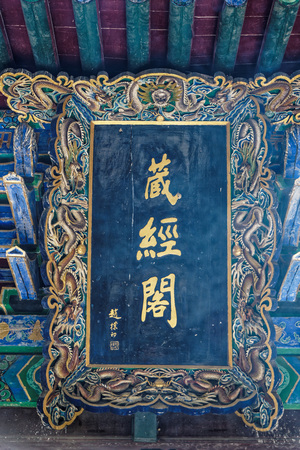 藏經閣
趙樸初